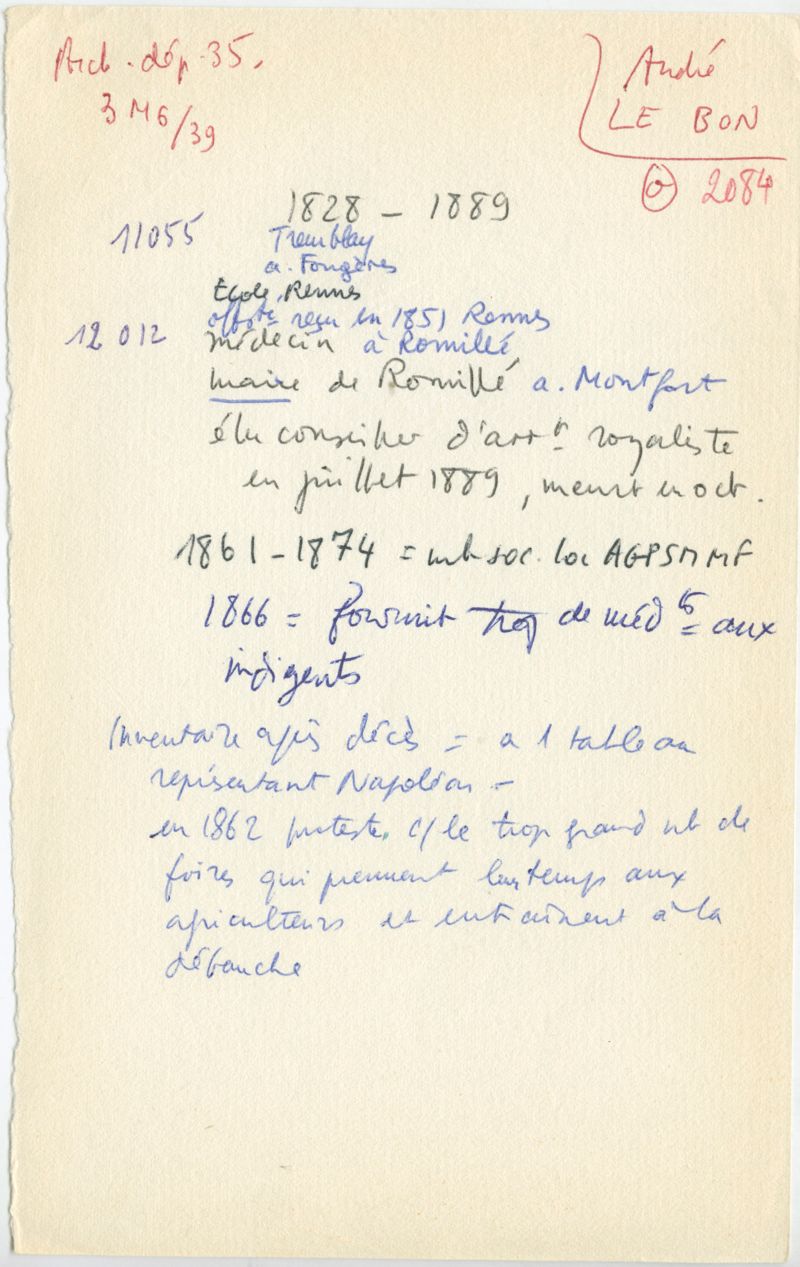 Arch. dép. 35.
3 M6/39
André
LE BON
2084
1828 – 1889
11055
Tremblay
a. Fougères
Ecole, Rennes
reçu en 1851 Rennes
12 012
médecin à Romillé
maire de Romillé a. Montfort
élu conseiller d'arrt royaliste
en juillet 1889, meurt en oct.
1861 – 1874 = mb soc. loc AGPSMMF
1866 = fournit trop de médts aux
indigents
Inventaire après décès = a 1 tableau
représentant Napoléon –
en 1862 proteste c/ le trop grand nb de
foires qui prennent temps aux
agriculteurs et entraînent à la
débauche